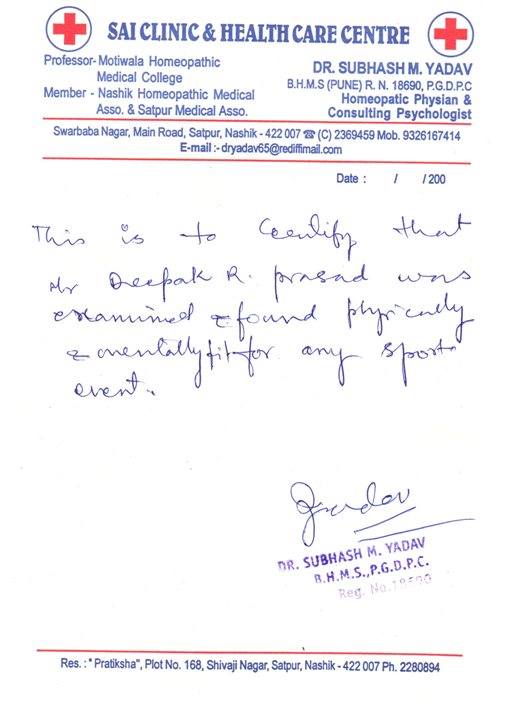 SAI CLINIC & HEALTH CARE CENTRE
Professor- Motiwala Homeopathic
Medical College
Member - Nashik Homeopathic Medical
Asso. & Satpur Medical Asso.
DR. SUBHASH M. YADAV
B.H.M.S (PUNE) R. N. 18690, P.G.D.P.C
Homeopatic Physian &
Consulting Psychologist
Swarbaba Nagar, Main Road, Satpur, Nashik - 422 007 ☎ (C) 2369459 Mob. 9326167414
E-mail :- dryadav65@rediffmail.com
Date : / / 200
This is to Certify that
Mr Deepak R. prasad was
examined & found physically
& mentally fit for any sports
event.
DR. SUBHASH M. YADAV
B.H.M.S.,P.G.D.P.C.
Reg. No.
Res. : " Pratiksha", Plot No. 168, Shivaji Nagar, Satpur, Nashik - 422 007 Ph. 2280894